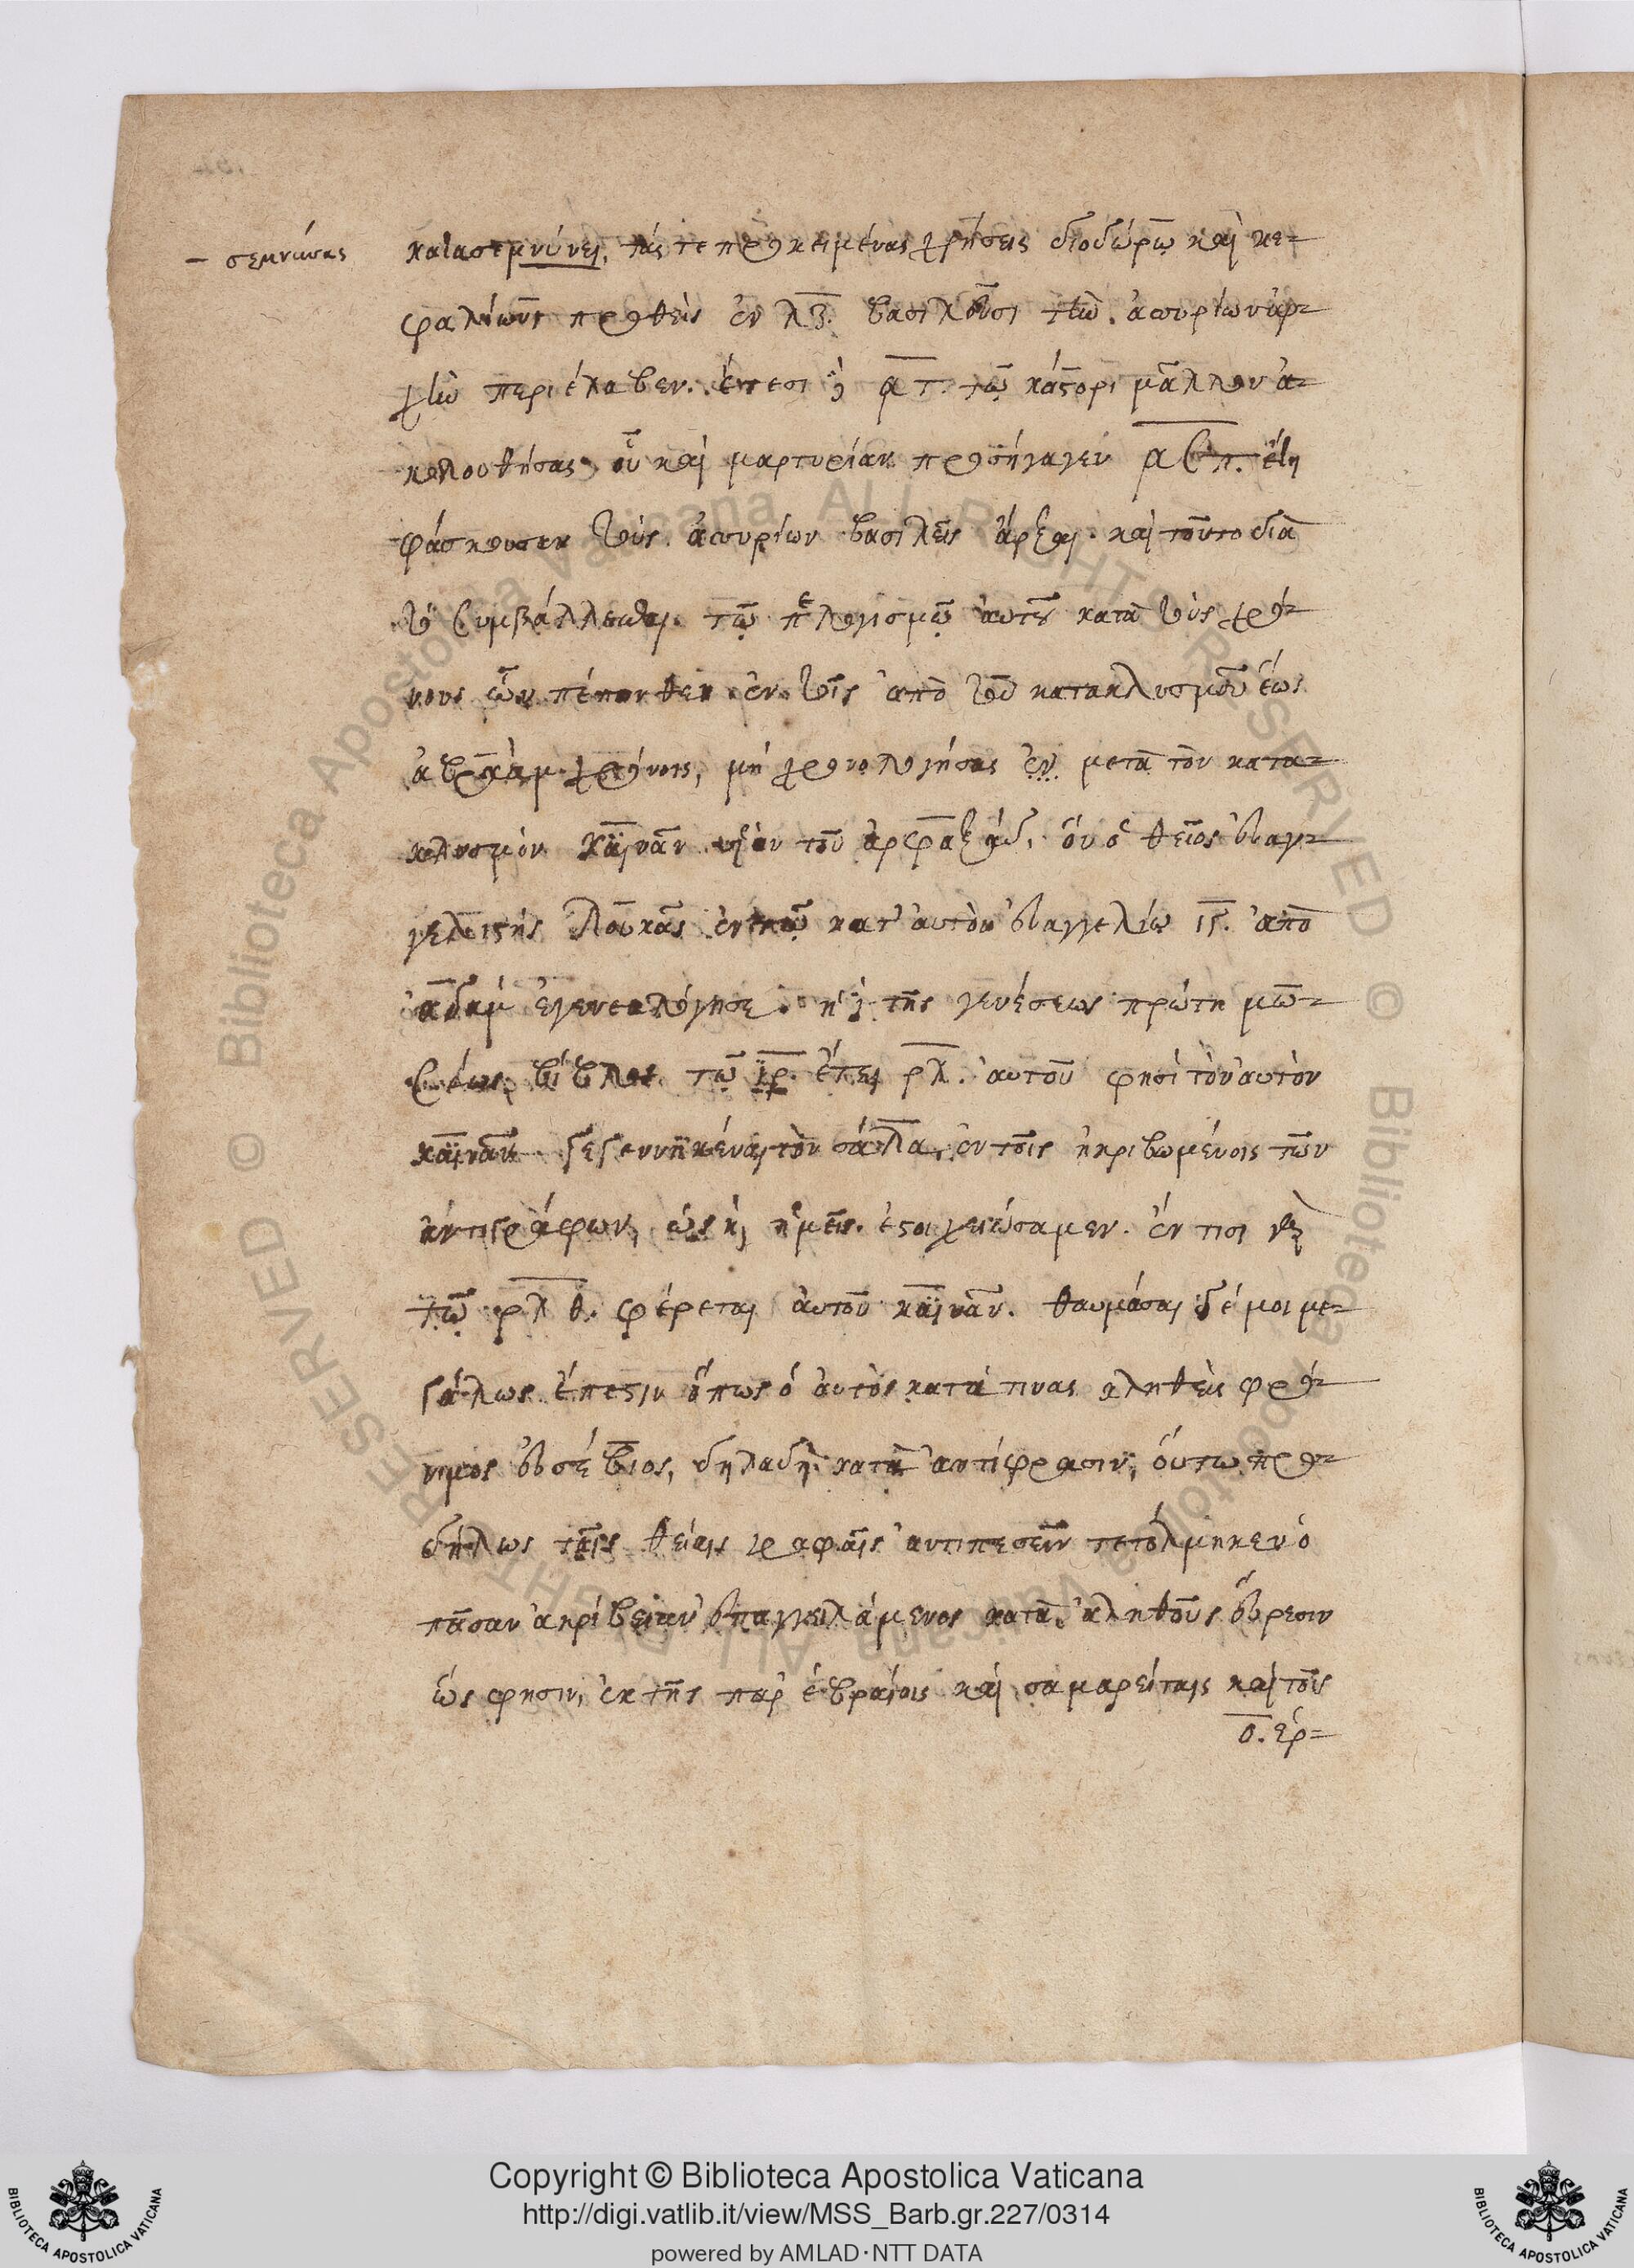 – σεμνύσας
κατασεμνύνει, τάς τε προκειμένας χρήσεις διοδώρω καὶ κε-
φαλίωνος προθεὶς ἐν λϛ. βασιλεῦσι τὴν ἀσσυρίων ἀρ-
χὴν περιέλαβεν. ἔτεσι δὲ ατ. τῶ κάστορι μᾶλλον ἀ-
κολουθήσας, οὗ καὶ μαρτυρίαν προσήγαγεν ασπ. ἔτη
φάσκουσαν τοὺς ἀσσυρίων βασιλεῖς ἄρξαι. καὶ τοῦτο διὰ
τὸ συμβάλλεσθαι τῶ λογισμῶ αὐτοῦ κατὰ τοὺς χρό-
νους ὧν πέπονθεν ἐν τοῖς ἀπὸ τοῦ κατακλυσμοῦ ἕως
ἀβραὰμ χρόνοις, μὴ χρονολογήσας ἐν μετὰ τὸν κατα-
κλυσμὸν καϊνᾶν υἱὸν τοῦ ἀρφαξάδ, ὃν ὁ θεῖος εὐαγ-
γελιστὴς λουκᾶς ἐν τῶ κατ' αὐτὸν εὐαγγελίω ιγ. ἀπὸ
ἀδὰμ ἐγενεαλόγησε. ἡ δὲ τῆς γενέσεως πρώτη μω-
σέως βίβλος τῶ ἔτει ρλ. αὐτοῦ φησὶ τὸν αὐτὸν
καϊνᾶν γεγεννηκέναι τὸν σάλα, ἐν τοῖς ἠκριβωμένοις τῶν
ἀντιγράφων, ὡς καὶ ἡμεῖς ἐστοιχειώσαμεν. ἔν τισι γὰρ
τῶ ρλθ. φέρεται αὐτοῦ καϊνᾶν. θαυμάσαι δέ μοι με-
γάλως ἔπεστιν ὅπως ὁ αὐτὸς κατά τινας κληθεὶς φρό-
νιμος εὐσέβιος, δηλαδὴ κατὰ ἀντίφρασιν, οὕτω προ-
δήλως ταῖς θείαις γραφαῖς ἀντιπεσεῖν τετόλμηκεν ὁ
πᾶσαν ἀκρίβειαν ἐπαγγειλάμενος κατὰ ἀληθοῦς εὕρεσιν
ὥς φησιν, ἐκ τῆς παρ' ἑβραίοις καὶ σαμαρείταις καὶ τοῖς
ο. ἑρ=
Copyright © Biblioteca Apostolica Vaticana
http://digi.vatlib.it/view/MSS_Barb.gr.227/0314
powered by AMLAD·NTT DATA